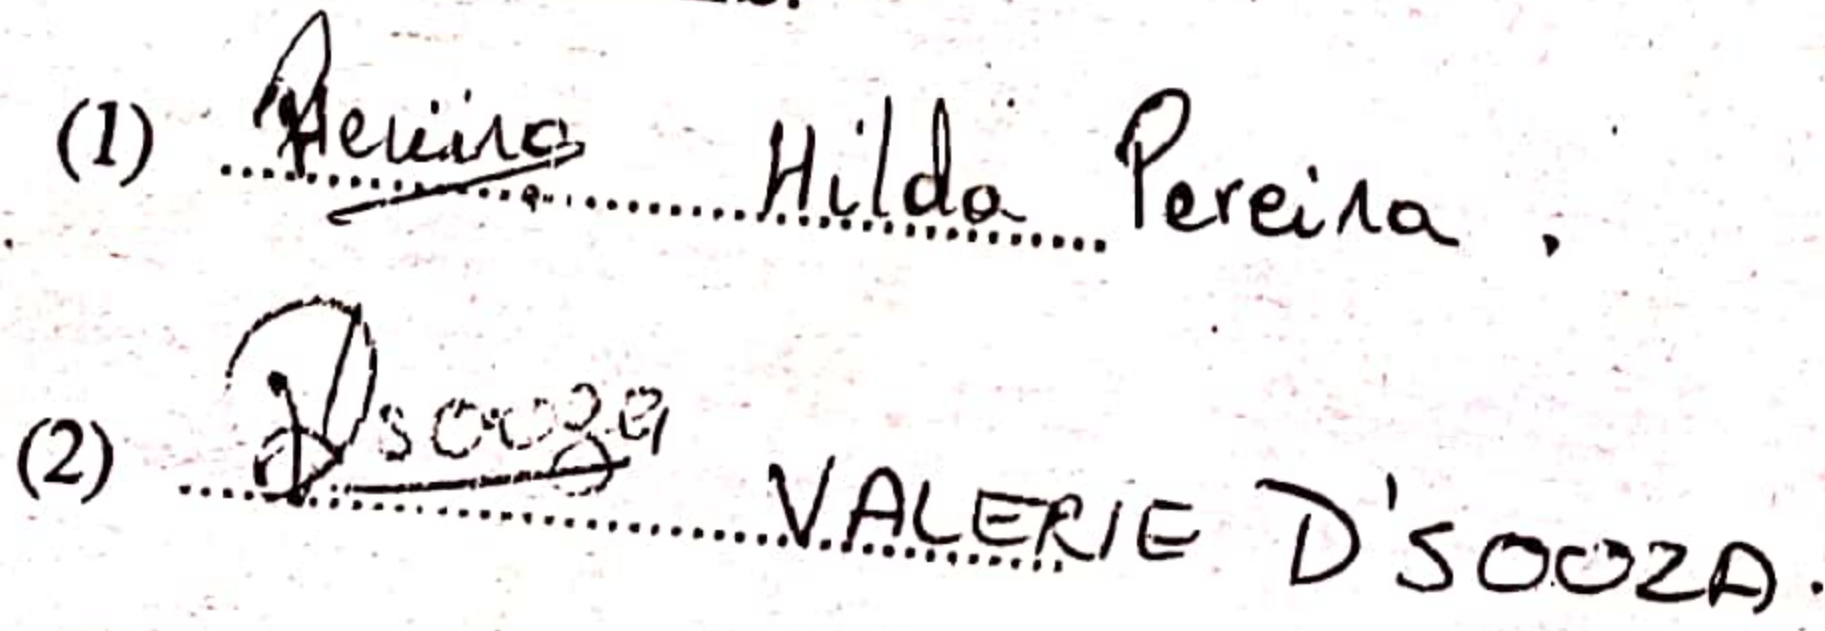 (1) Pereira Hilda Pereira.
(2) Dsouza VALERIE D'SOUZA.